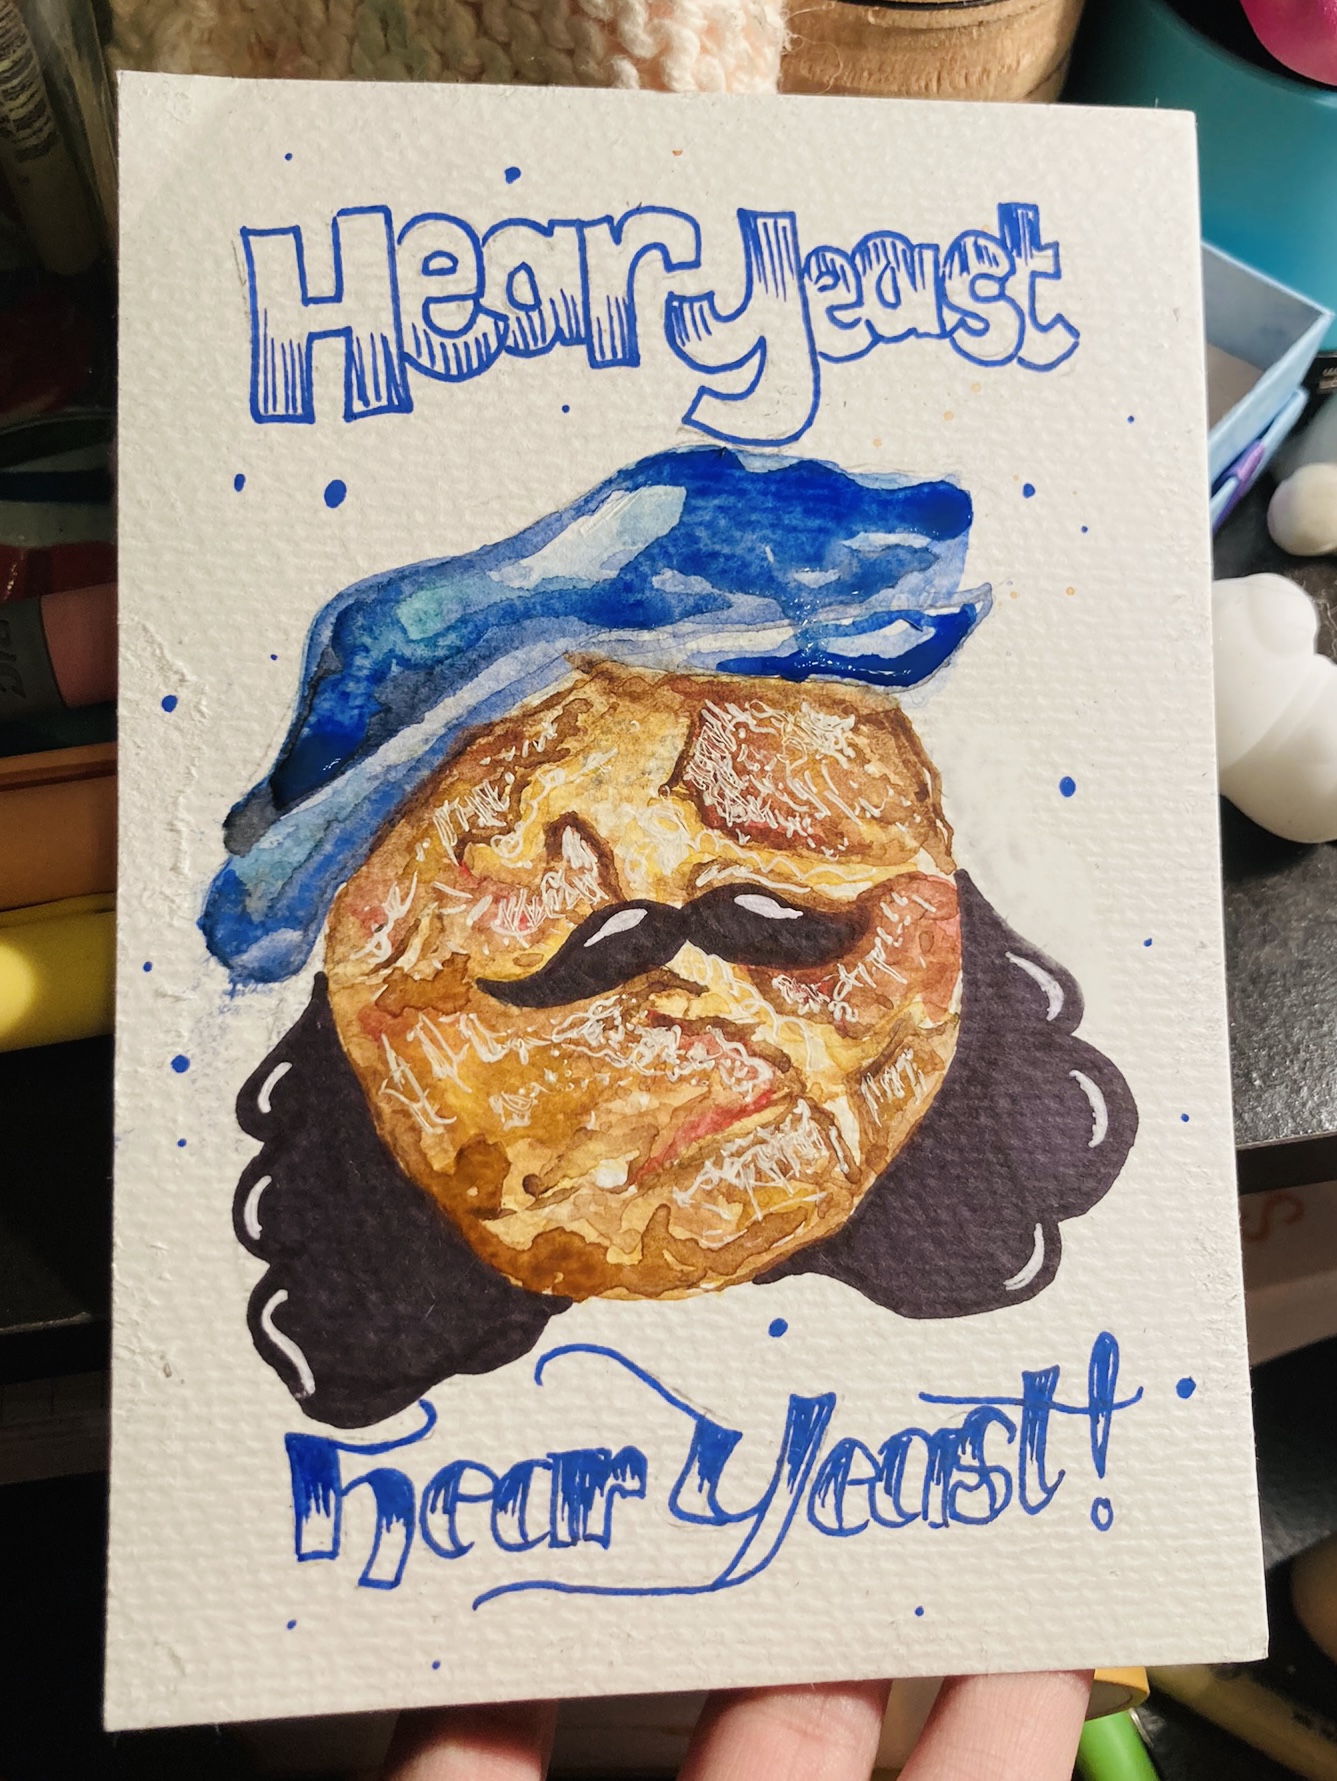 Hear Yeast
hear Yeast!